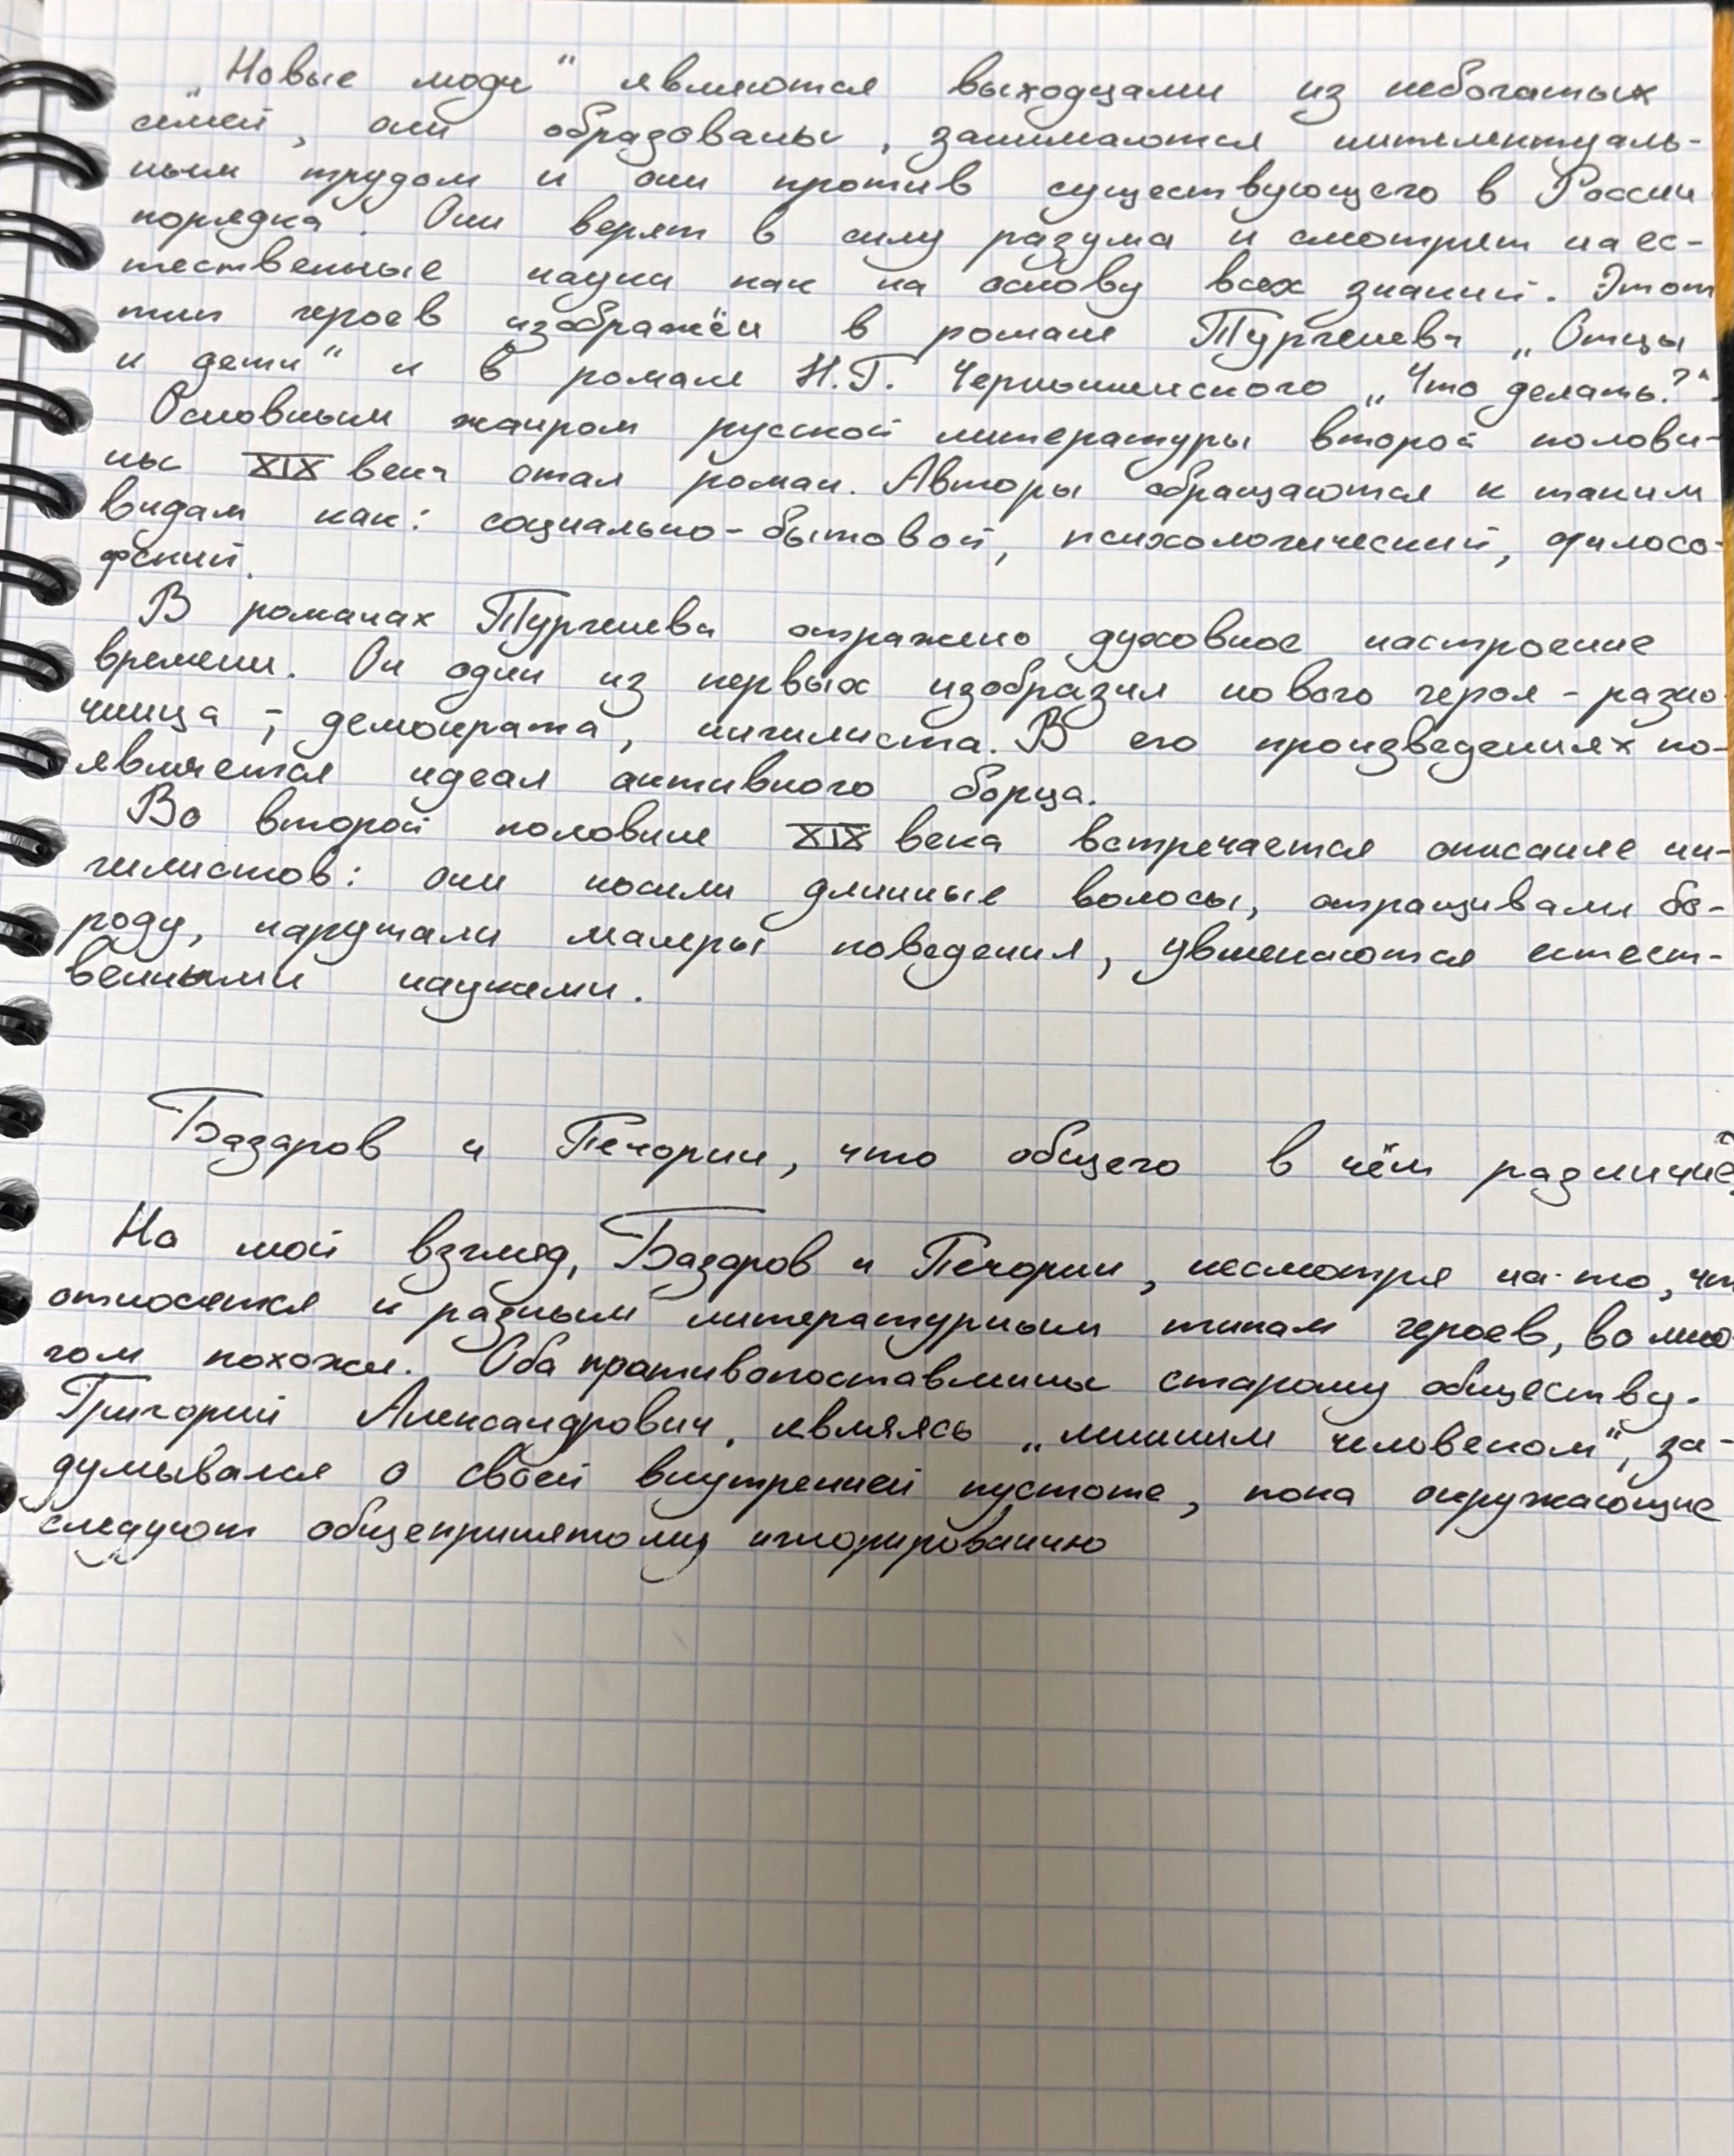 „Новые люди" являются выходцами из небогатых
семей, они образованы, занимаются интелектуаль-
ным трудом и они против существующего в России
порядка. Они верят в силу разума и смотрят на ес-
тественные науки как на основу всех знаний. Этот
тип героев изображён в романе Тургенева „Отцы
и дети" и в романе Н.Г. Чернышевского „Что делать?".
Основным жанром русской литературы второй полови-
ны XIX века стал роман. Авторы обращаются к таким
видам как: социально-бытовой, психологический, филосо-
фский.
В романах Тургенева отражено духовное настроение
времени. Он один из первых изобразил нового героя - разно-
чинца -, демократа, нигилиста. В его произведениях по-
является идеал активного борца.
Во второй половине XIX века встречается описание ни-
гилистов: они носили длинные волосы, отращивали бо-
роду, нарушали манеры поведения, увлекаются естест-
венными науками.
Базаров и Печорин, что общего в чём различие?
На мой взгляд, Базаров и Печорин, несмотря на-то, что
относятся к разным литературным типам героев, во мно
гом похожи. Оба противопоставлины старому обществу.
Григорий Александрович, являясь „лишним человеком", за-
думывался о своей внутренней пустоте, пока окружающие
следуют общепринятому игнорированию